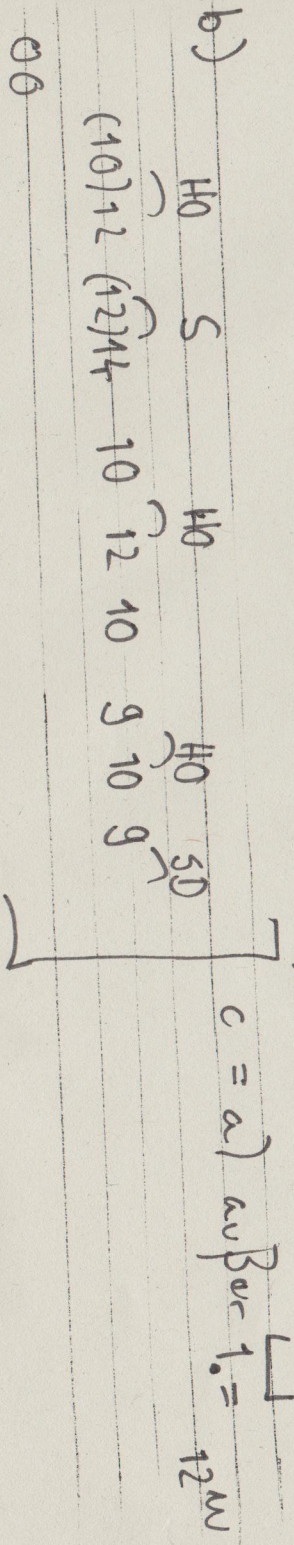 b) HO S HO HO SD
(10)12 (12)14 10 12 10 9 10 9
c = a) außer 1. = 12